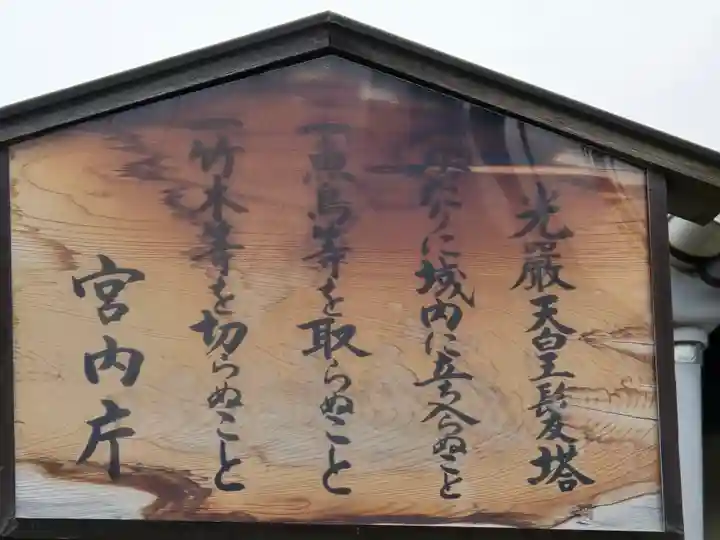 光厳天皇髪塔
一みだりに域内に立ち入らぬこと
一魚鳥等を取らぬこと
一竹木等を切らぬこと
宮内庁